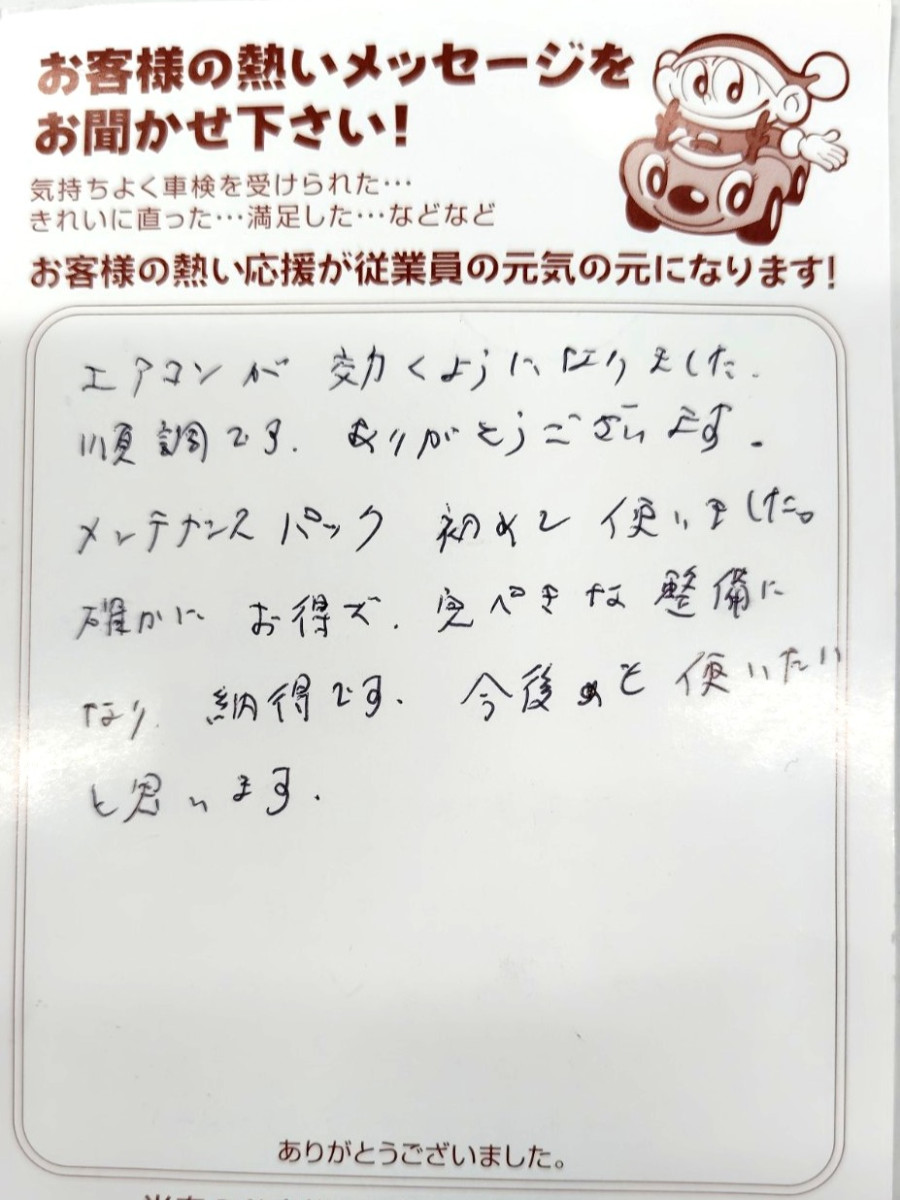 お客様の熱いメッセージを
お聞かせ下さい!
気持ちよく車検を受けられた…
きれいに直った…満足した…などなど
お客様の熱い応援が従業員の元気の元になります!
エアコンが 効くようになりました.
順調です. ありがとうございます.
メンテナンスパック 初めて 使いました。
確かに お得で. 完ぺきな 整備に
なり 納得です. 今後も 使いたい
と思います.
ありがとうございました。